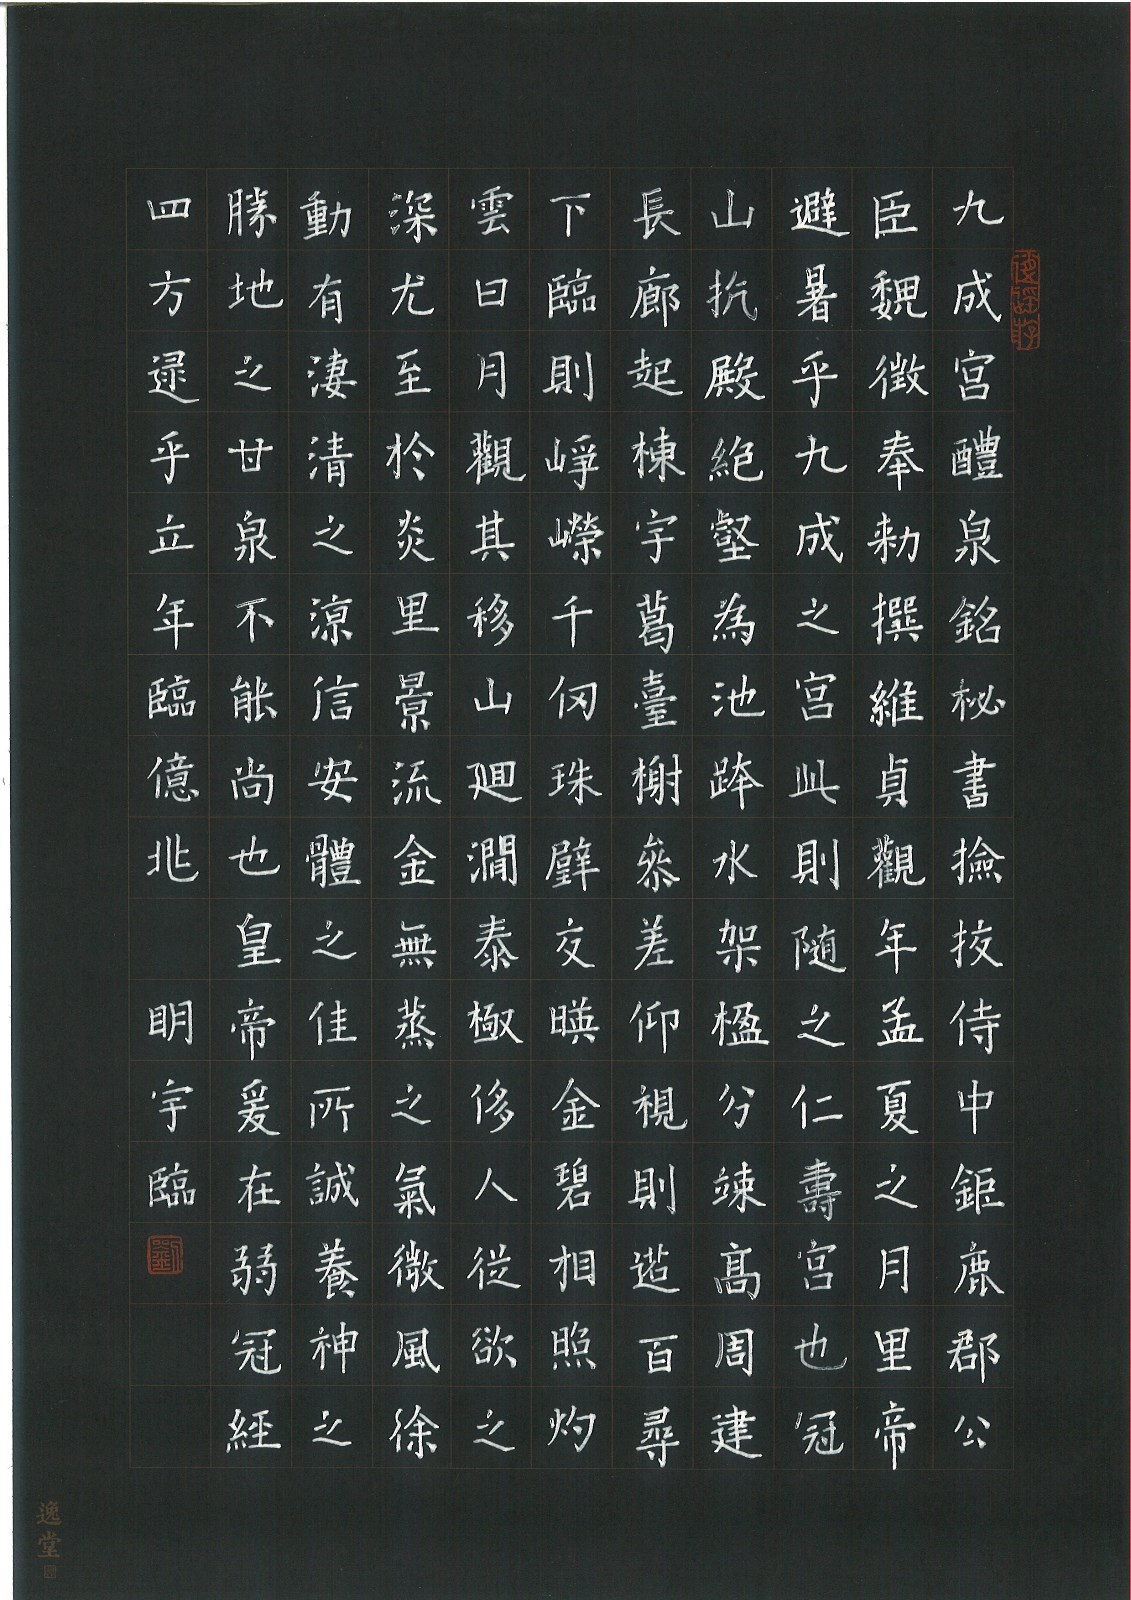 九成宫醴泉銘秘書撿挍侍中鉅鹿郡公
臣魏徵奉勑撰維貞觀年孟夏之月里帝
避暑乎九成之宫此則随之仁壽宫也冠
山抗殿絶壑為池跨水架楹分竦髙周建
長廊起棟宇葛臺榭叅差仰視則迢百尋
下臨則崢嶸千仞珠璧交暎金碧相照灼
雲日月觀其移山廻澗泰極侈人從欲之
深尤至於炎里景流金無蒸之氣微風徐
動有淒清之凉信安體之佳所誠養神之
勝地之甘泉不能尚也皇帝爰在弱冠經
四方逮乎立年臨億兆 明宇臨
劉
逸堂